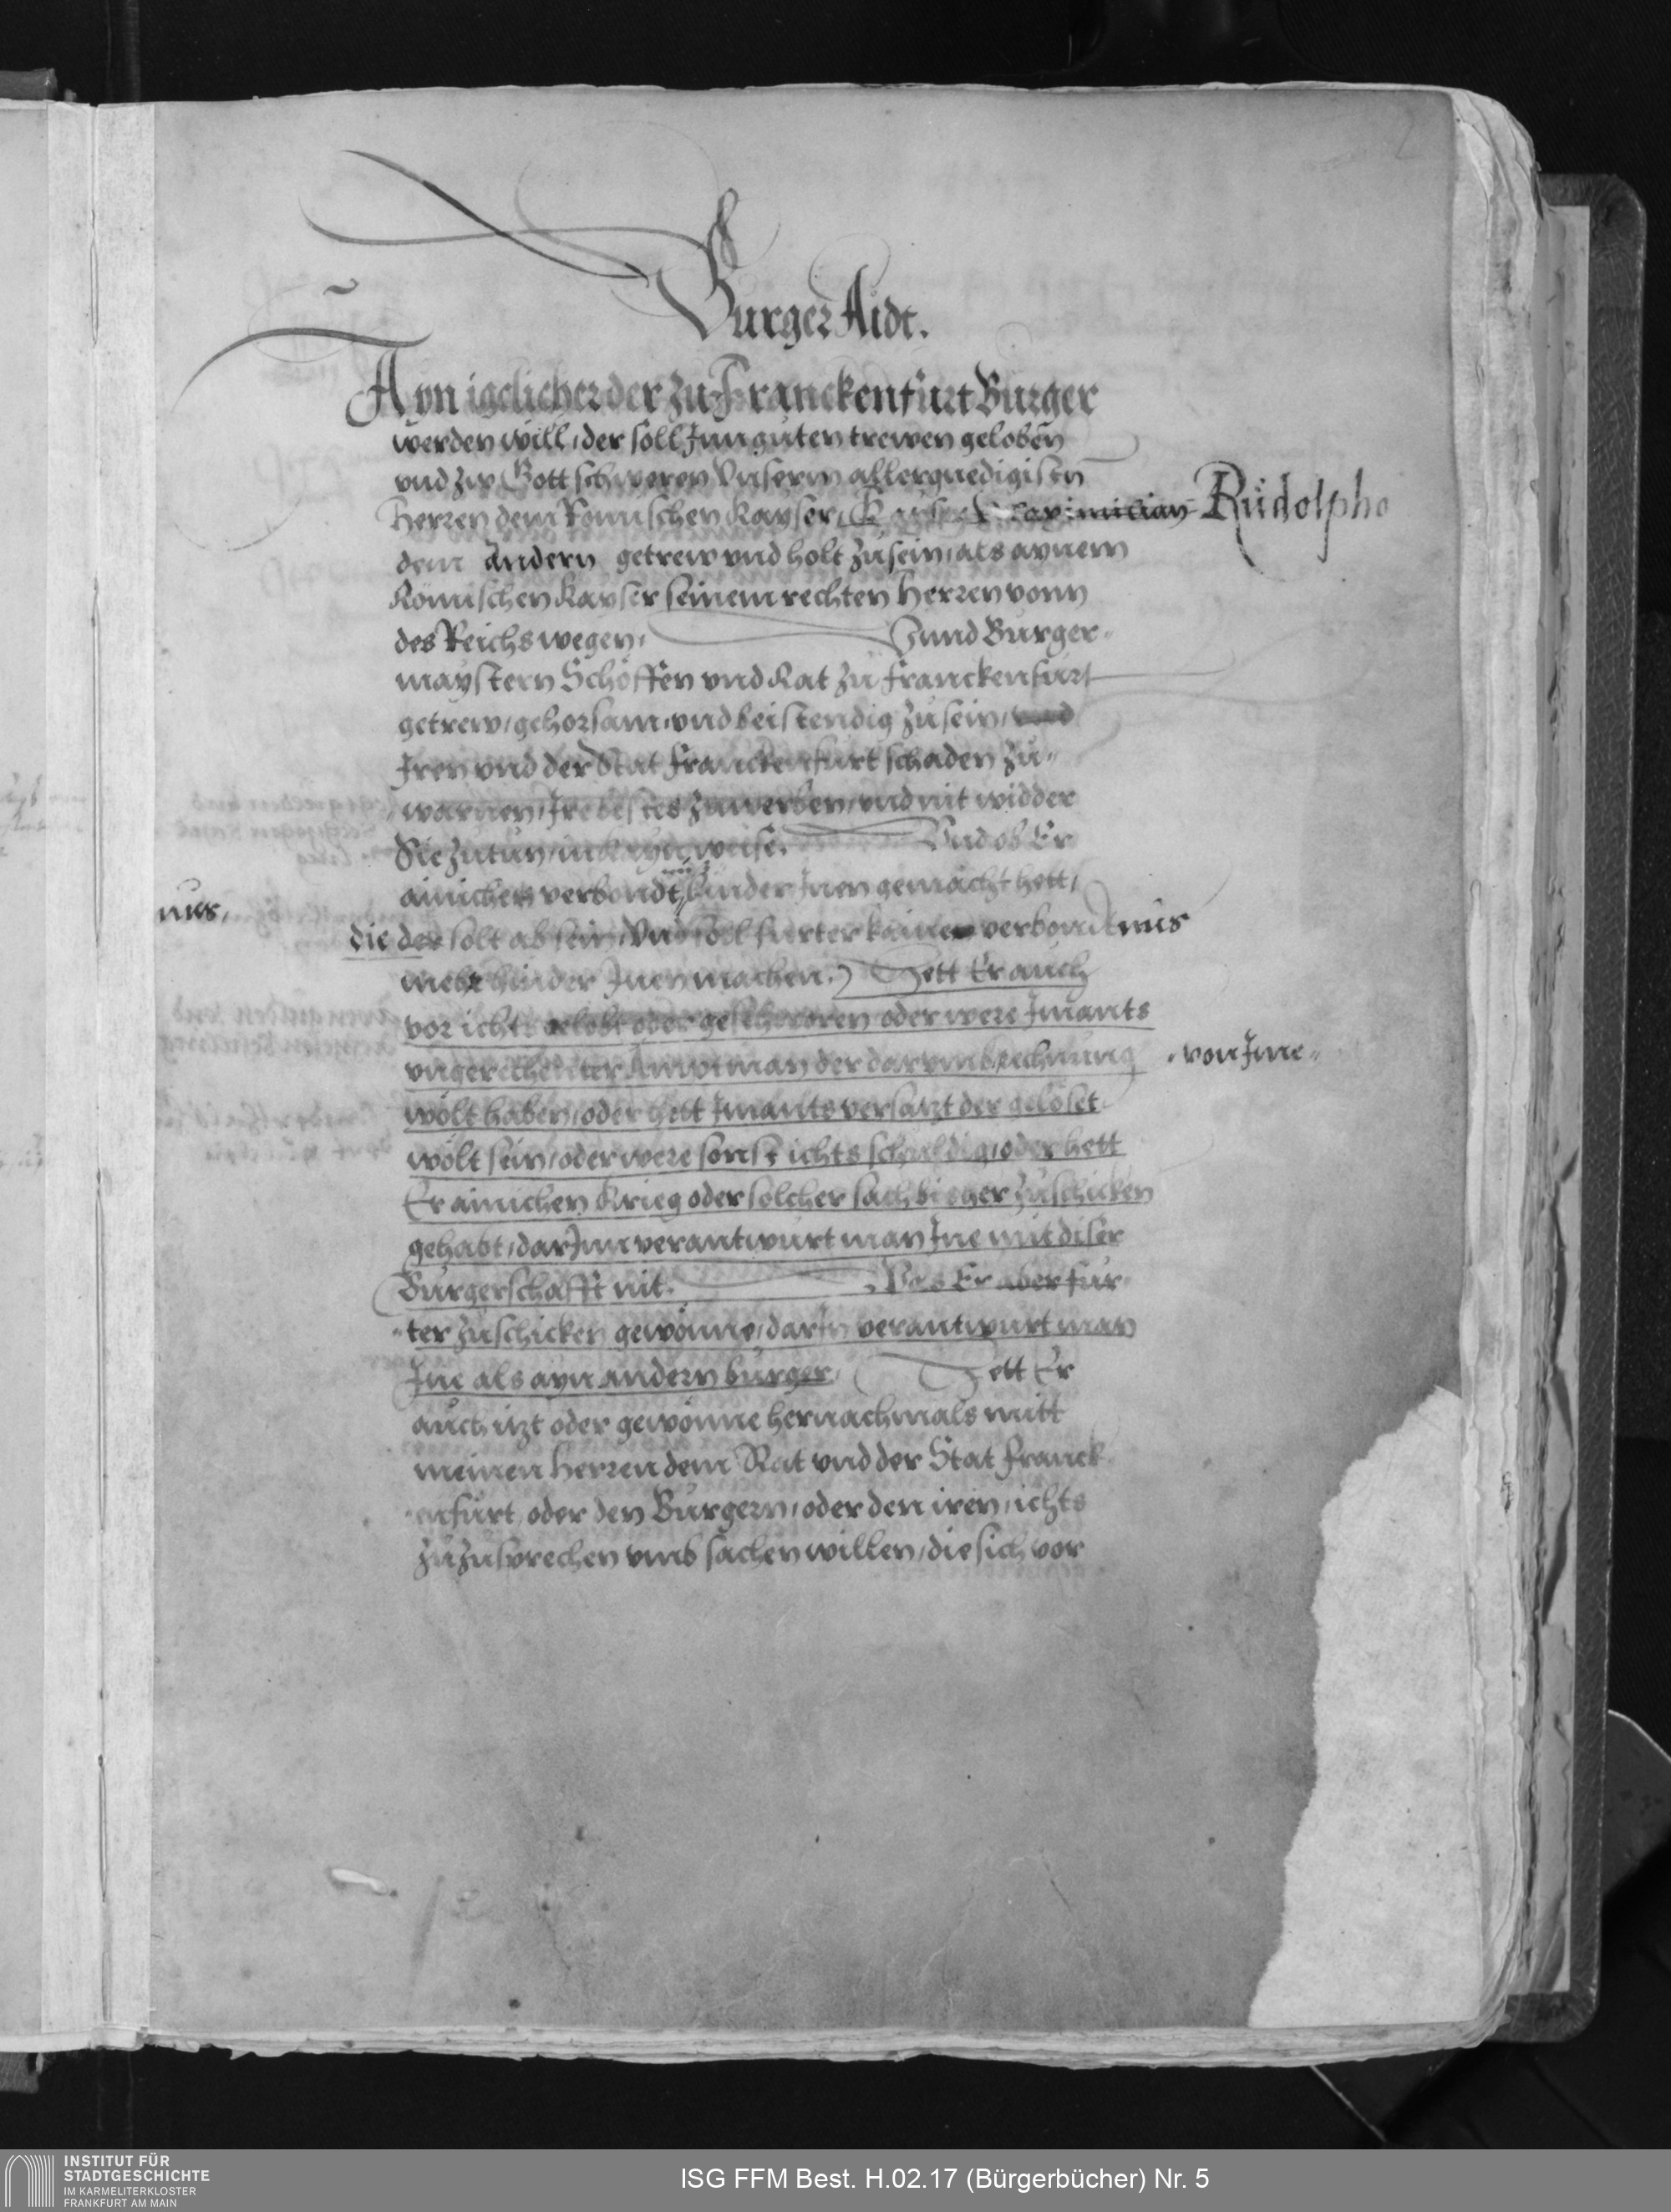 2
Burger Aidt.
Ayn igelicher der zu Franckenfurt Burger
werden will, der soll Inn guten trewen geloben
vnd zw Gott schweren Vnserm allergnedigisten
Herren dem Romischen Kayser, Kayser Maximilian Rudolpho
dem andern getrew vnd holt zu sein, als aynem
Romischen Kayser seinem rechten Herren vonn
des Reichs wegen, Vnnd Burger-
maystern Schöffen vnd Rat zu Franckenfurt
getrew, gehorsam, vnd beistendig zu sein, vnd
Iren vnd der Stat Franckenfurt schaden zu-
warnen, Ire bestes zuwerben, vnd nit widder
Sie zu tun, in kayn weise. Vnd ob Er
ainichen verbondt hinder Inen gemacht hett,
nus,
die der solt ab sein, Vnd soll furter kainen verbondtnus
mehr hinder Inen machen. Hett Er auch
vor ichts gelobt oder geschworen oder were Imants
vngerechenter Amptman der darvmb rechnung von Ime
wölt haben, oder hett Imants versatzt der gelöset
wölt sein, oder were sonst ichts schuldig, oder hett
Er ainichen Krieg oder solcher sach bisher zuschicken
gehabt, dar Inn verantwurt man Ine mit diser
Burgerschafft nit. Was Er aber fur-
ter zuschicken gewönne, dar In verantwurt man
Ine als ayn andern burger, Hett Er
auch itzt oder gewönne hernachmals mitt
meinen Herren dem Rat vnd der Stat Franck
enfurt, oder den Burgern, oder den iren, ichts
zuzusprechen vmb sachen willen, die sich vor
INSTITUT FÜR
STADTGESCHICHTE
IM KARMELITERKLOSTER
FRANKFURT AM MAIN
ISG FFM Best. H.02.17 (Bürgerbücher) Nr. 5